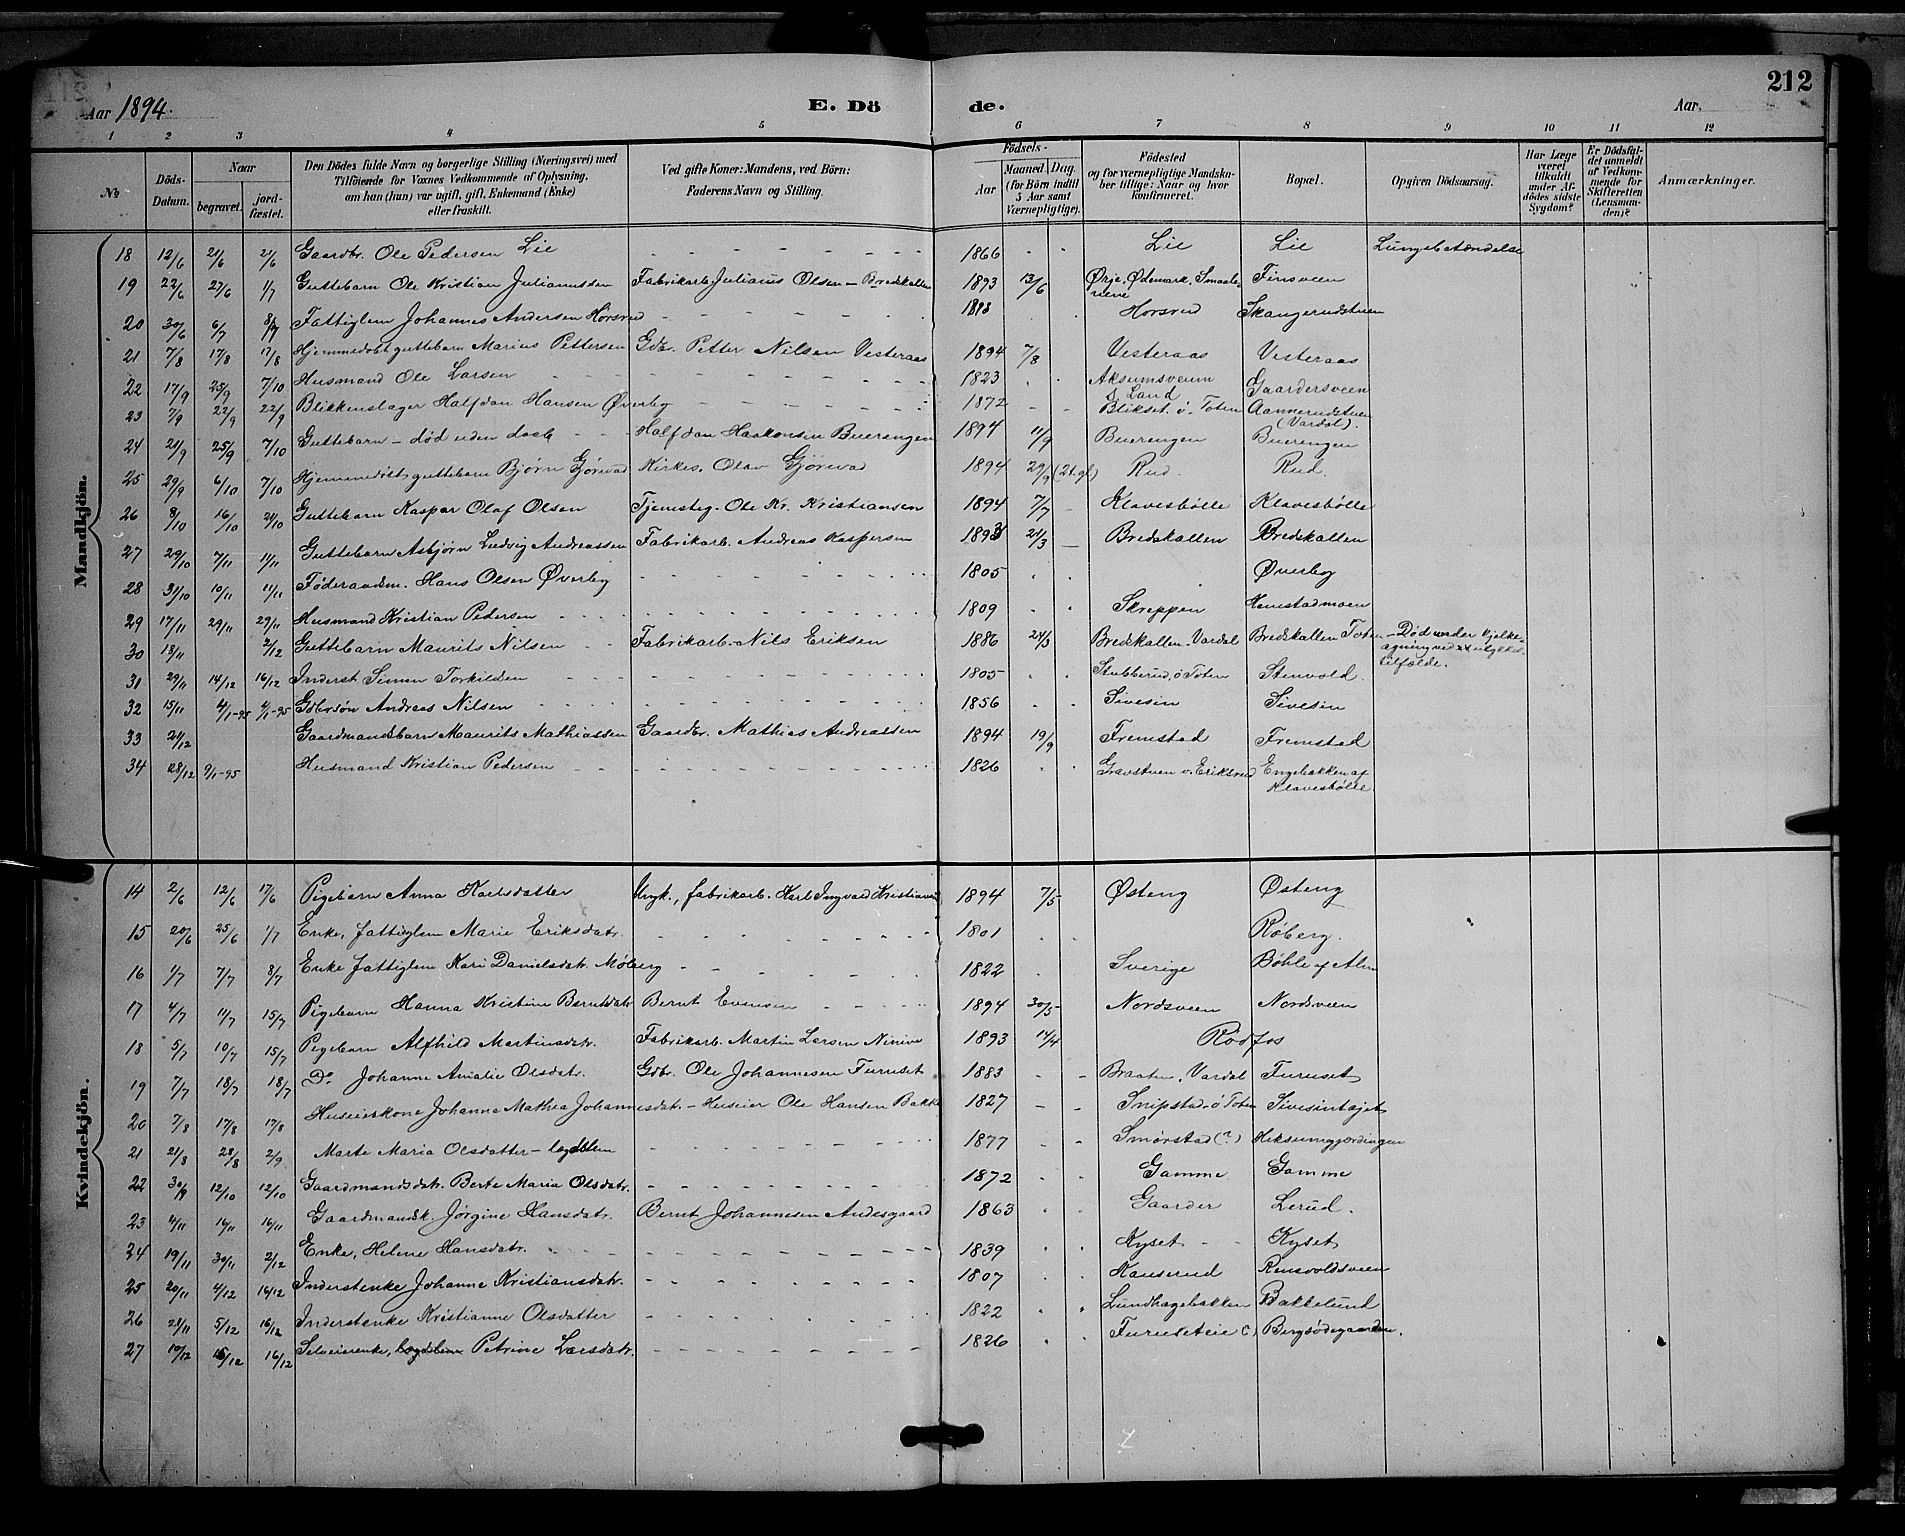 212
Aar 1894. E. Dö de. Aar.
1 2 3 4 5 6 7 8 9 10 11 12
No Döds-Datum. Naar begravet. jordfæstet. Den Dödes fulde Navn og borgerlige Stilling (Næringsvei) med Tilföiende for Voxnes Vedkommende af Oplysning, om han (hun) var ugift, gift, Enkemand (Enke) eller fraskilt. Ved gifte Koner: Mandens, ved Börn: Faderens Navn og Stilling. Födsels- Aar Maaned Dag. (for Börn indtil 5 Aar samt Værnepligtige). Födested og for værnepligtige Mandskaber tillige: Naar og hvor konfirmeret. Bopæl. Opgiven Dödsaarsag. Har Læge været tilkaldt under Afdödes sidste Sygdom? Er Dödsfaldet anmeldt af Vedkommende for Skifteretten (Lensmanden)? Anmærkninger.
Mandkjön.
18 12/6 21/6 21/6 Gaardbr. Ole Pedersen Lie 1866 Lie Lie Lungebetændelse
19 22/6 27/6 1/7 Guttebarn Ole Kristian Juliannssen Fabrikarb. Julianus Olsen - Bredskallen 1893 13/6 Ørje, Ødemark, Smaalenene Finsveen
20 30/6 6/7 8/7 Fattiglem Johannes Andersen Horsrud Horsrud Skangerudstuen
21 7/8 17/8 17/8 Hjemmedøbt guttebarn Marius Pettersen Gdbr. Petter Nilsen Vesteraas 1894 7/8 Vesteraas Vesteraas
22 17/9 25/9 7/10 Husmand Ole Larsen 1823 Aksumsveum S. Land Gaardersveen
23 7/9 22/9 22/9 Blikkenslager Halfdan Hansen Øverby 1872 Blikset ø. Toten Aannerudstuen (Vardal).
24 21/9 25/9 7/10 Guttebarn - død uden daab Halfdan Haakonsen Buerengen 1894 11/9 Buerengen Buerengen
25 29/9 6/10 7/10 Hjemmedøbt guttebarn Bjørn Gjörvad Kirkes. Olav Gjörvad 1894 29/9 (2 t. gl.) Rud. Rud.
26 8/10 16/10 21/10 Guttebarn Kaspar Olaf Olsen Tjenesteg. Ole Kr. Kristiansen 1894 7/7 Klavesbölle Klavesbölle
27 29/10 7/11 11/11 Guttebarn Asbjørn Ludvig Andreassen Fabrikarb. Andreas Kaspersen 1893 21/3 Bredskallen Bredskallen
28 31/10 10/11 11/11 Föderaadsm. Hans Olsen Øverby 1805 Øverby
29 17/11 29/11 29/11 Husmand Kristian Pedersen 1809 Skreppen Hemstadmoen
30 18/11 2/12 Guttebarn Maurits Nilsen Fabrikarb. Nils Eriksen 1886 24/3 Bredskallen Vardal Bredskallen Toten - Død under kjelkeagning ved ulykkestilfælde.
31 29/11 14/12 16/12 Inderst Simen Torkildsen 1805 Stubberud ø. Toten Stenvold.
32 15/11 4/1-95 4/1-95 Gdbrsøn Andreas Nilsen 1856 Sivesin Sivesin
33 21/12 Gaardmandsbarn Maurits Mathiassen Gaardbr. Mathias Andreassen 1894 19/9 Fremstad Fremstad
34 28/12 9/1-95 Husmand Kristian Pedersen 1826 Gravstuen v. Eriksrud Engebakken af Klavesbölle
Kvindekjön.
14 2/6 12/6 17/6 Pigebarn Anna Karlsdatter Ungk., fabrikarb. Karl Ingvald Kristiansen 1894 7/5 Østeng Østeng
15 20/6 25/6 1/7 Enke, fattiglem Marie Eriksdatr. 1801 Røberg.
16 1/7 7/7 8/7 Enke fattiglem Kari Danielsdatr. Møberg 1822 Sverige Bøhle af Alm
17 4/7 11/7 15/7 Pigebarn Hanna Kristine Berntsdatr. Bernt Evensen 1894 30/5 Nordsveen Nordsveen
18 5/7 10/7 15/7 Pigebarn Alfhild Martinsdatr. Fabrikarb. Martin Larsen Ninive 1893 14/4 Rödfos
19 7/7 18/7 18/7 Do Johanne Amalie Olsdatr. Gdbr. Ole Johannesen Furuset 1883 Braaten, Vardal Furuset
20 7/8 17/8 17/8 Huseierskone Johanna Mathea Johannesdatr. - Huseier Ole Hansen Bakke 1827 Snipstad ø Toten Sivesintajet
21 21/8 28/8 2/9 Marte Maria Olsdatter - lægdslem 1877 Smørstad (?) Heksumgjærdingen
22 30/9 12/10 12/10 Gaardmandsdatr. Berte Maria Olsdatr. 1872 Gamme Gamme
23 4/11 16/11 16/11 Gaardmandsk. Jørgine Hansdatr. Bernt Johannesen Andesgaard 1863 Gaarder Lerud.
24 19/11 30/11 2/12 Enke, Helene Hansdatr. 1839 Kyset Kyset
25 20/11 4/12 16/12 Inderstenke Johanne Kristiansdatr. 1807 Kanserud Rensvoldsveen
26 28/11 5/12 16/12 Inderstenke Kristianne Olsdatter 1822 Lundhagebakken Bakkelund
27 10/12 15/12 16/12 Selveierenke, lægdslem Petrine Larsdatr. 1826 Furuseteie (?) Bergsødegaarden.